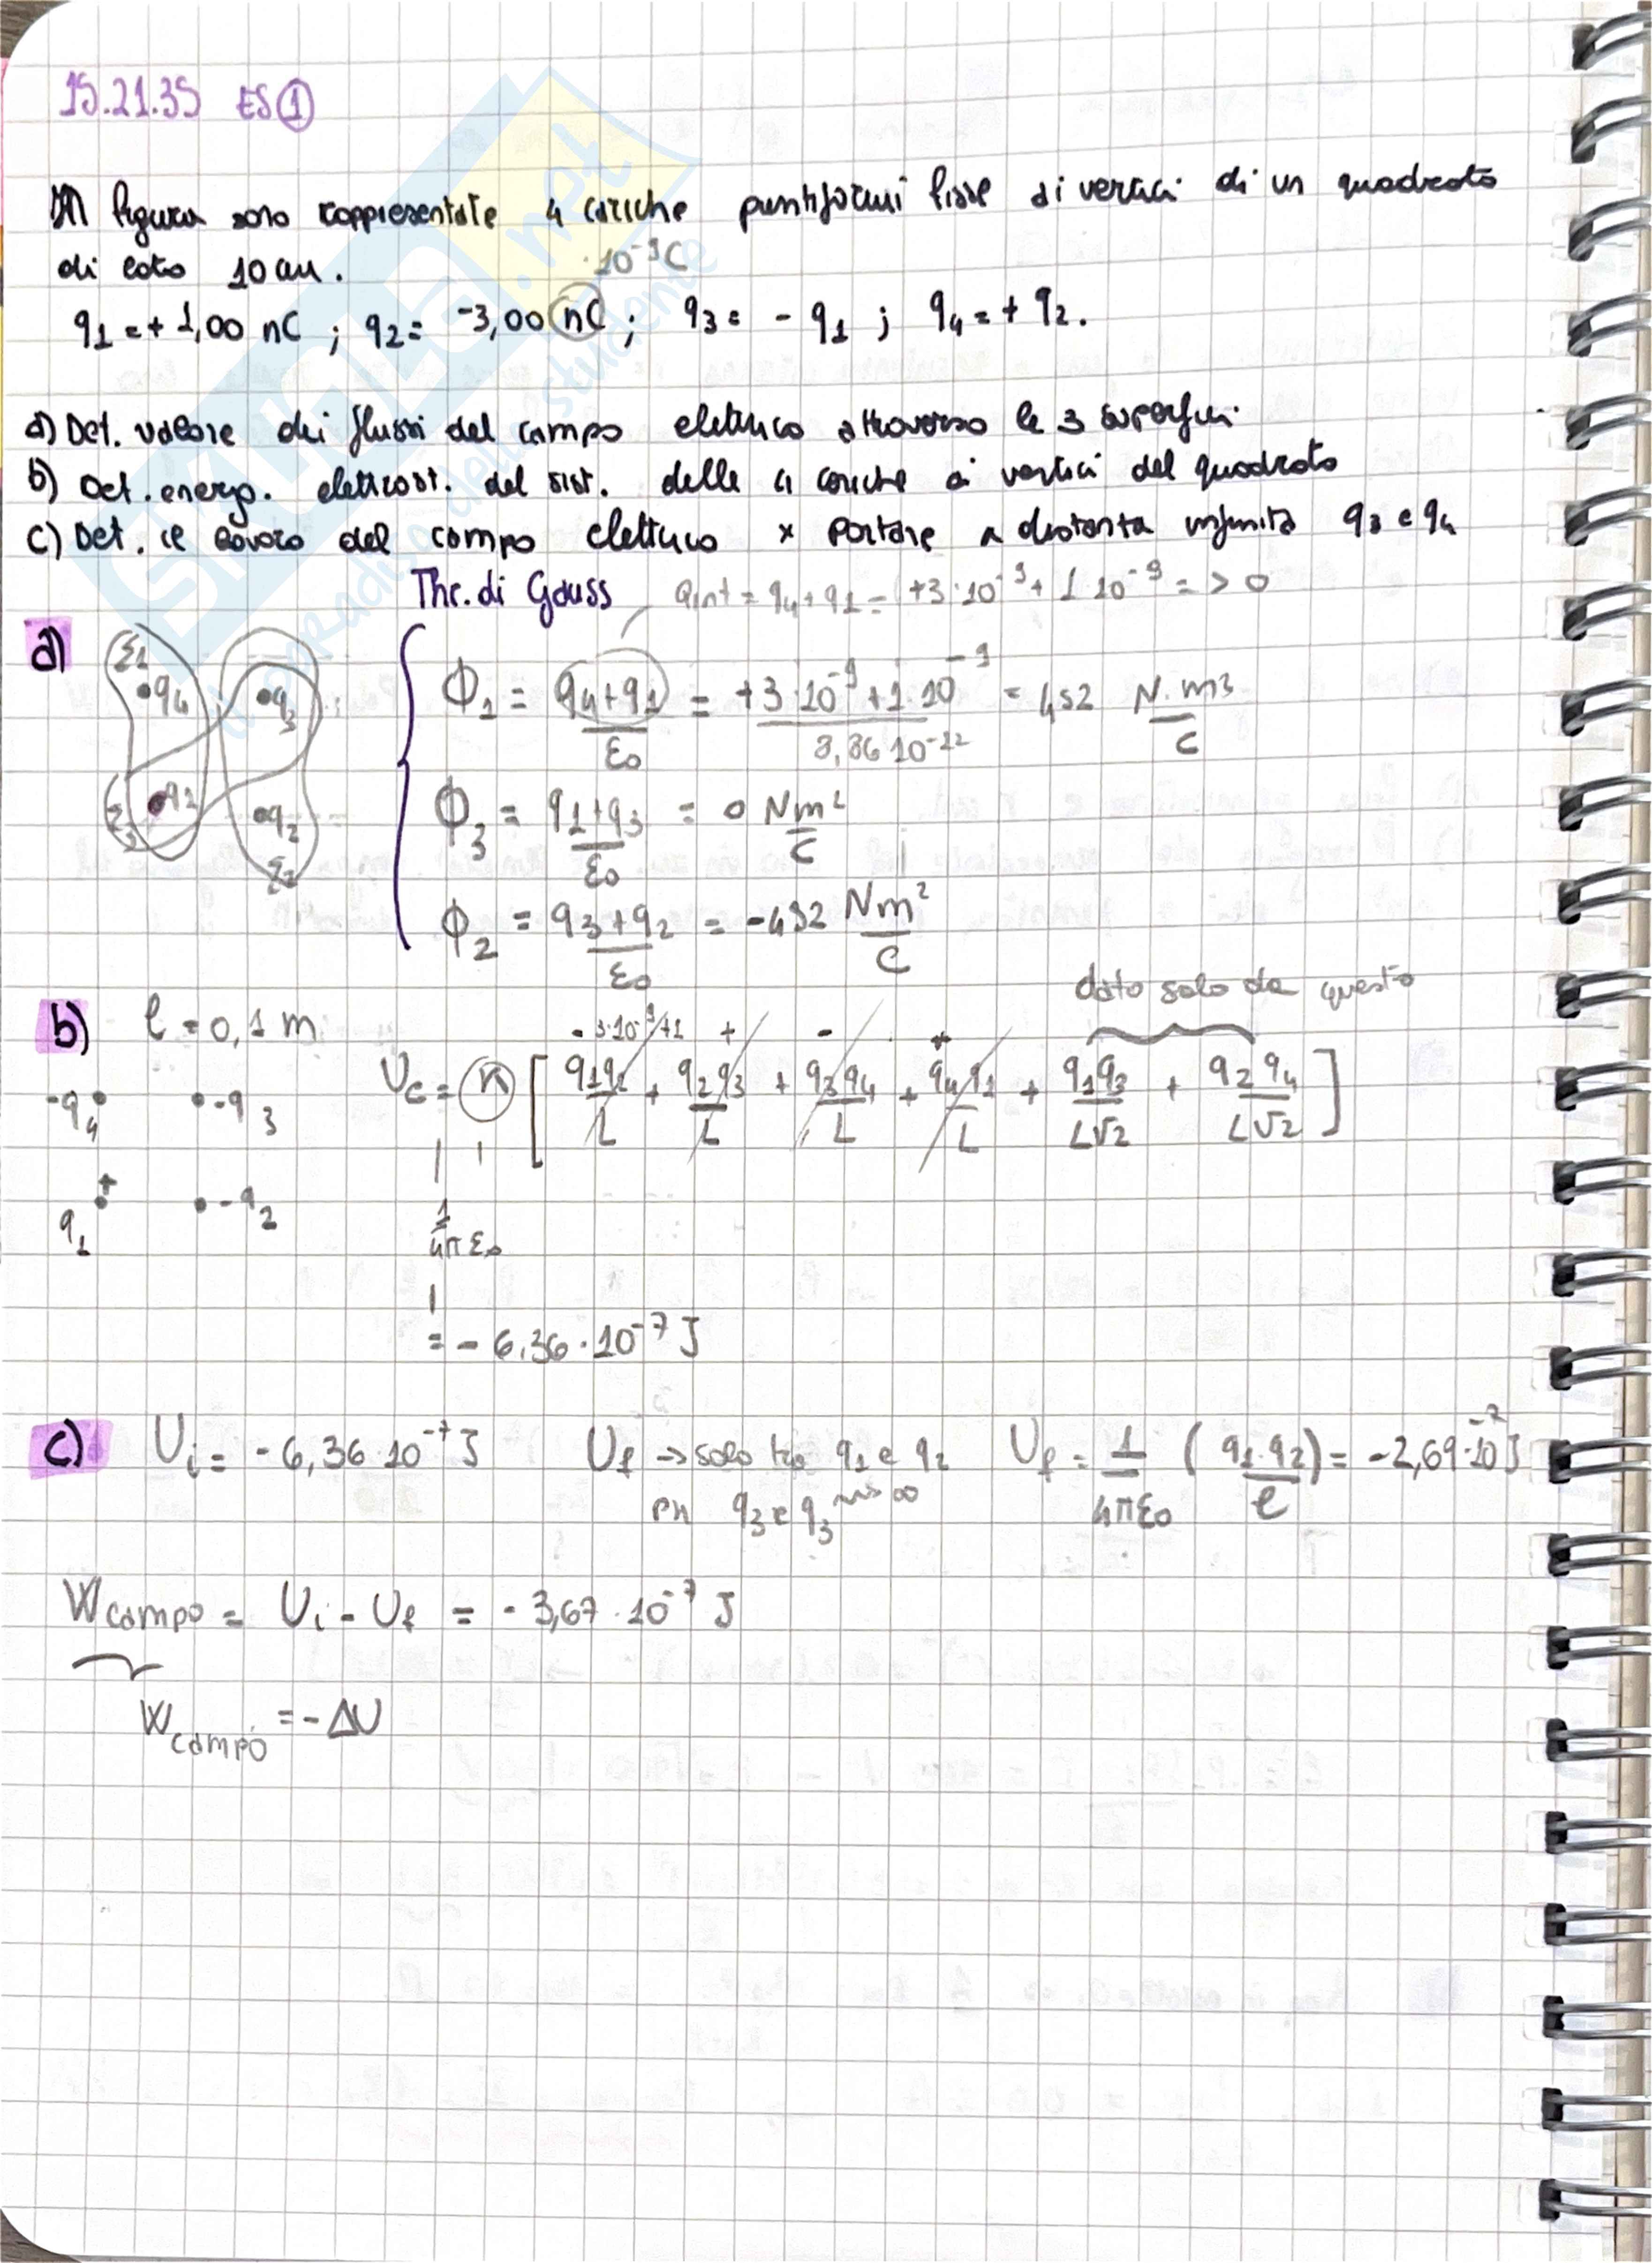 15.21.35 ES 1
In figura sono rappresentate 4 cariche puntiformi fisse ai vertici di un quadrato
di lato 10 cm. ·10⁻⁹C
q1 = + 1,00 nC ; q2 = -3,00 nC ; q3 = - q1 ; q4 = + q2.
a) Det. valore dei flussi del campo elettrico attraverso le 3 superfici
b) Det. energ. elettrost. del sist. delle 4 cariche ai vertici del quadrato
c) Det. il lavoro del campo elettrico x portare a distanza infinita q3 e q4
Thr. di Gauss Qint = q4 + q1 = +3·10⁻⁹ + 1·10⁻⁹ = > 0
a) Σ1 q4 q3 Σ3 q2 Σ2
Φ1 = (q4+q1)/ε0 = (+3·10⁻⁹+1·10⁻⁹)/(8,86·10⁻¹²) = 452 N·m²/C
Φ3 = (q1+q3)/ε0 = 0 Nm²/C
Φ2 = (q3+q2)/ε0 = -452 Nm²/C
dato solo da questo
b) l = 0,1 m
- 3·10⁻⁹/+1 + - +
Uc = K [ q1q2/L + q2q3/L + q3q4/L + q4q1/L + q1q3/L√2 + q2q4/L√2 ]
-q4 -q3
q1 + -q2
1/4πε0
= - 6,36·10⁻⁷ J
c) Ui = -6,36·10⁻⁷ J Uf → solo tra q1 e q2 Uf = 1/4πε0 (q1·q2/l) = -2,69·10⁻⁷ J
q3 e q3 ∞
Wcampo = Ui - Uf = - 3,67·10⁻⁷ J
Wcampo = -ΔU
SKUOLA.net
il paradiso dello studente